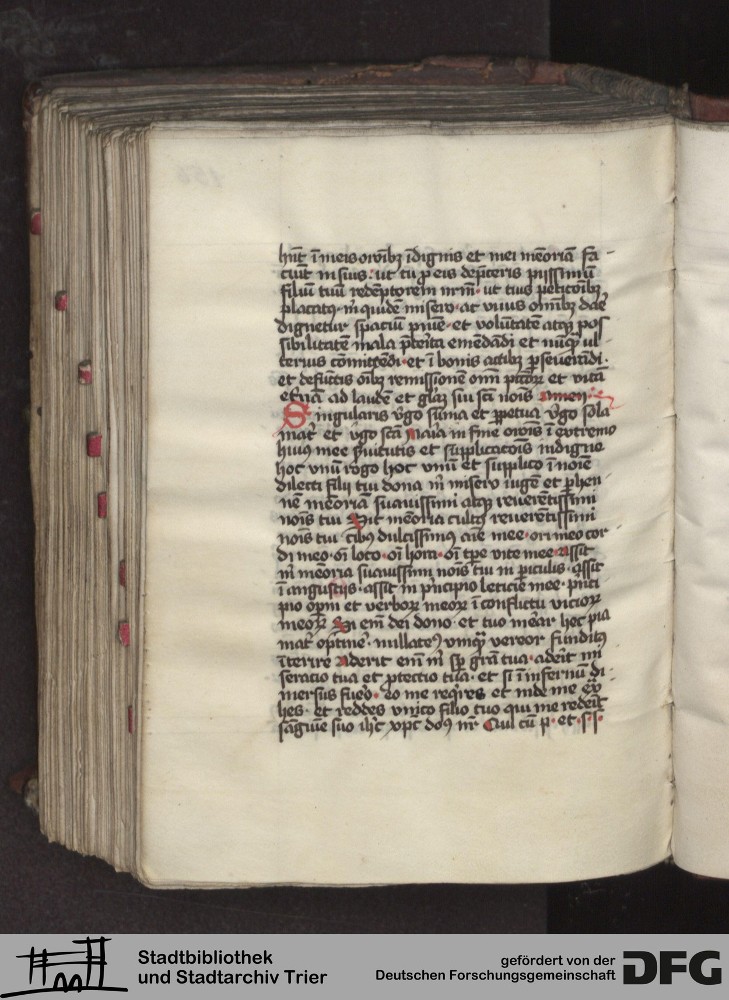 hūt ī meis orōībꝫ īdignis et mei mēoriā fa-
ciūt in suis. ut tu ꝓ eis dep̄ceris piissimū
filiū tuū redēptorem nr̄m. ut tuis peticōībꝫ
placatꝰ. m̄ quidē misero ac viuis om̄ibꝫ dare
dignetur spaciū pnīe. et volūtatē atqꝫ pos
sibilitatē mala p̄terita emēdādi et nūqꝫ ul-
terius cōmittēdi. et ī bonis actibꝫ ꝑseuerādi.
et defūctis oībꝫ remissionē om̄ pctōꝝ et vitā
et̄nā ad laudē et gl̄az sui sc̄i nōis amen.
Singularis v̄go sūma et ꝑpetua v̄go sola
mat̄ et v̄go sc̄a Maīa in fine orōis ī extremo
huius mee s̄uitutis et supplicatōis indigne
hoc vnū rogo hoc vnū et supplico ī noīe
dilecti filii tui dona m̄ misero iugē et ꝑhen
nē mēoriā suauissimi atqꝫ reuerētissimi
nōis tui Sit mēoria cultꝰ reuerētissimi
nōis tui cibꝰ dulcissimꝰ aīe mee. ori meo cor
di meo. oī loco. oī hora. oī tp̄e vite mee Assit
m̄ mēoria suauissimi nōis tui in ꝑiculis. assit
ī angustiis. assit in p̄ncipio leticie mee. p̄nci
pio opm̄ et verboꝝ meoꝝ ī conflictu vicioꝝ
meoꝝ Si em̄ dei dono et tuo hec pia
mat̄ optīnē. nullatenꝰ vmqꝫ vereor funditꝰ
īterire Aderit em̄ m̄ sp̄ gr̄a tua. aderit mi
seracio tua et ꝓtectio tua. et si ī infernū di-
mersus fuero. eo me reqͥres et inde me ext̄
hes. et reddes vnico filio tuo qui me redeīt
sāguīe suo ih̄c xp̄c dn̄s nr̄ Qui cū p. et. s. s.
Stadtbibliothek
und Stadtarchiv Trier
gefördert von der
Deutschen Forschungsgemeinschaft
DFG